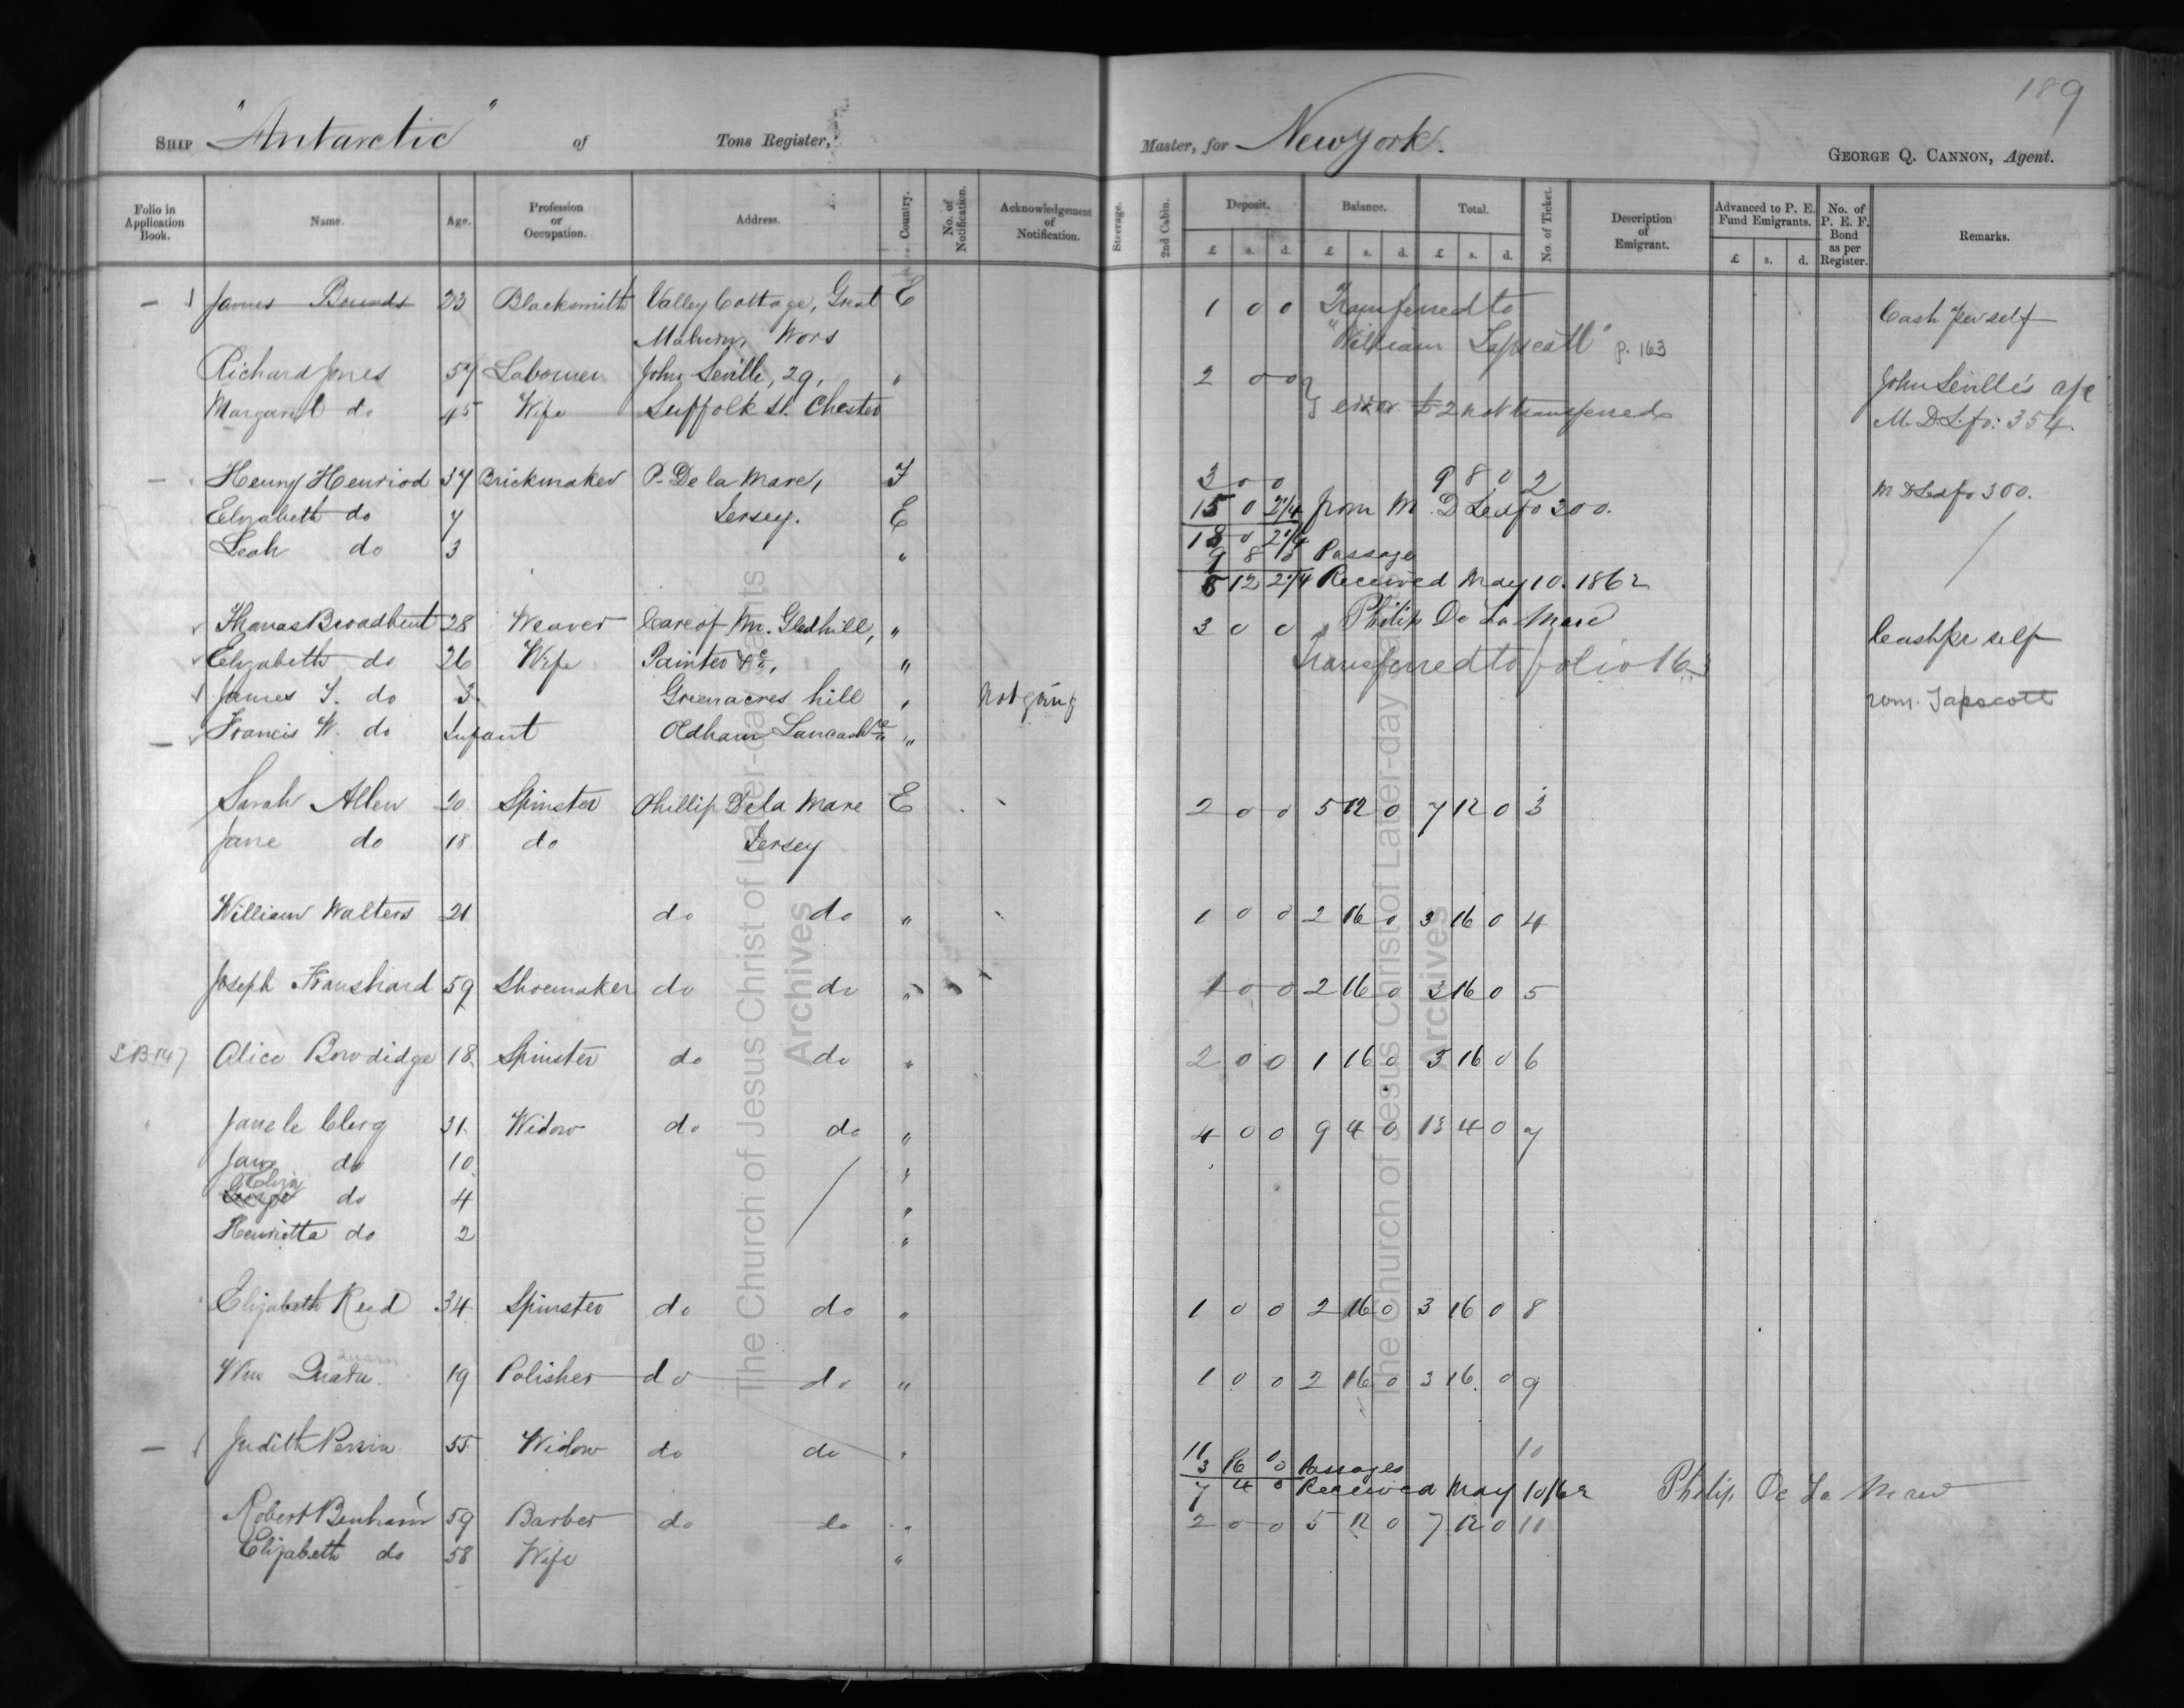 189
Ship "Antarctic" of Tons Register, Master, for New York.
George Q. Cannon, Agent.
Folio in Application Book. Name. Age. Profession or Occupation. Address. Country. No. of Notification. Acknowledgement of Notification. Steerage. 2nd Cabin. Deposit. Balance. Total. No. of Ticket. Description of Emigrant. Advanced to P. E. Fund Emigrants. No. of P. E. F. Bond as per Register. Remarks.
£ s. d. £ s. d. £ s. d. £ s. d.
James Bounds 23 Blacksmith Valley Cottage, Great E 1 0 0 Transferred to Cash per self
Malvern, Wors "William Tapscott" p. 163
Richard Jones 57 Labourer John Seville, 29, " 2 0 0 John Seville's a/c
Margaret do 45 Wife Suffolk St. Chester error £2 not transferred M. D. L. fo: 354.
Henry Henriod 37 Brickmaker P. De la Mare, F 3 0 0 9 8 0 2 M D Led fo 300.
Elizabeth do 7 Jersey. E 15 0 2 1/4 from M. D Led fo 300.
Leah do 3 " 18 0 2 1/4
9 8 0 Passage
8 12 2 1/4 Received May 10. 1862
Philip De La Mare
Thomas Broadbent 28 Weaver Care of Mr. Gledhill, " 3 0 0 Cash pr self
Elizabeth do 26 Wife Painter &c, " Transferred to folio 163
James T. do 3 Greenacres hill " Not going Wm. Tapscott
Francis W. do Infant Oldham Lancash "
Sarah Allen 20 Spinster Phillip De la Mare E 2 0 0 5 12 0 7 12 0 3
Jane do 18 do Jersey
William Walters 21 do do " 1 0 0 2 16 0 3 16 0 4
Joseph 59 Shoemaker do do " 1 0 0 2 16 0 3 16 0 5
Alice Bowdidge 18 Spinster do do " 2 0 0 1 16 0 3 16 0 6
Jane le Clerq 31 Widow do do " 4 0 0 9 4 0 13 4 0 7
Jane do 10 "
Eliza
George do 4 "
Henrietta do 2 "
Elizabeth Reed 34 Spinster do do " 1 0 0 2 16 0 3 16 0 8
Wm 19 Polisher do do " 1 0 0 2 16 0 3 16 0 9
Judith Perrin 55 Widow do do " 11 0 0 10
3 16 0 Passages
7 4 0 Received May 10/62 Philip De La Mare
Robert Benham 59 Barber do do " 2 0 0 5 12 0 7 12 0 11
Elizabeth do 58 Wife "
The Church of Jesus Christ of Latter-day Saints
Archives
The Church of Jesus Christ of Latter-day Saints
Archives